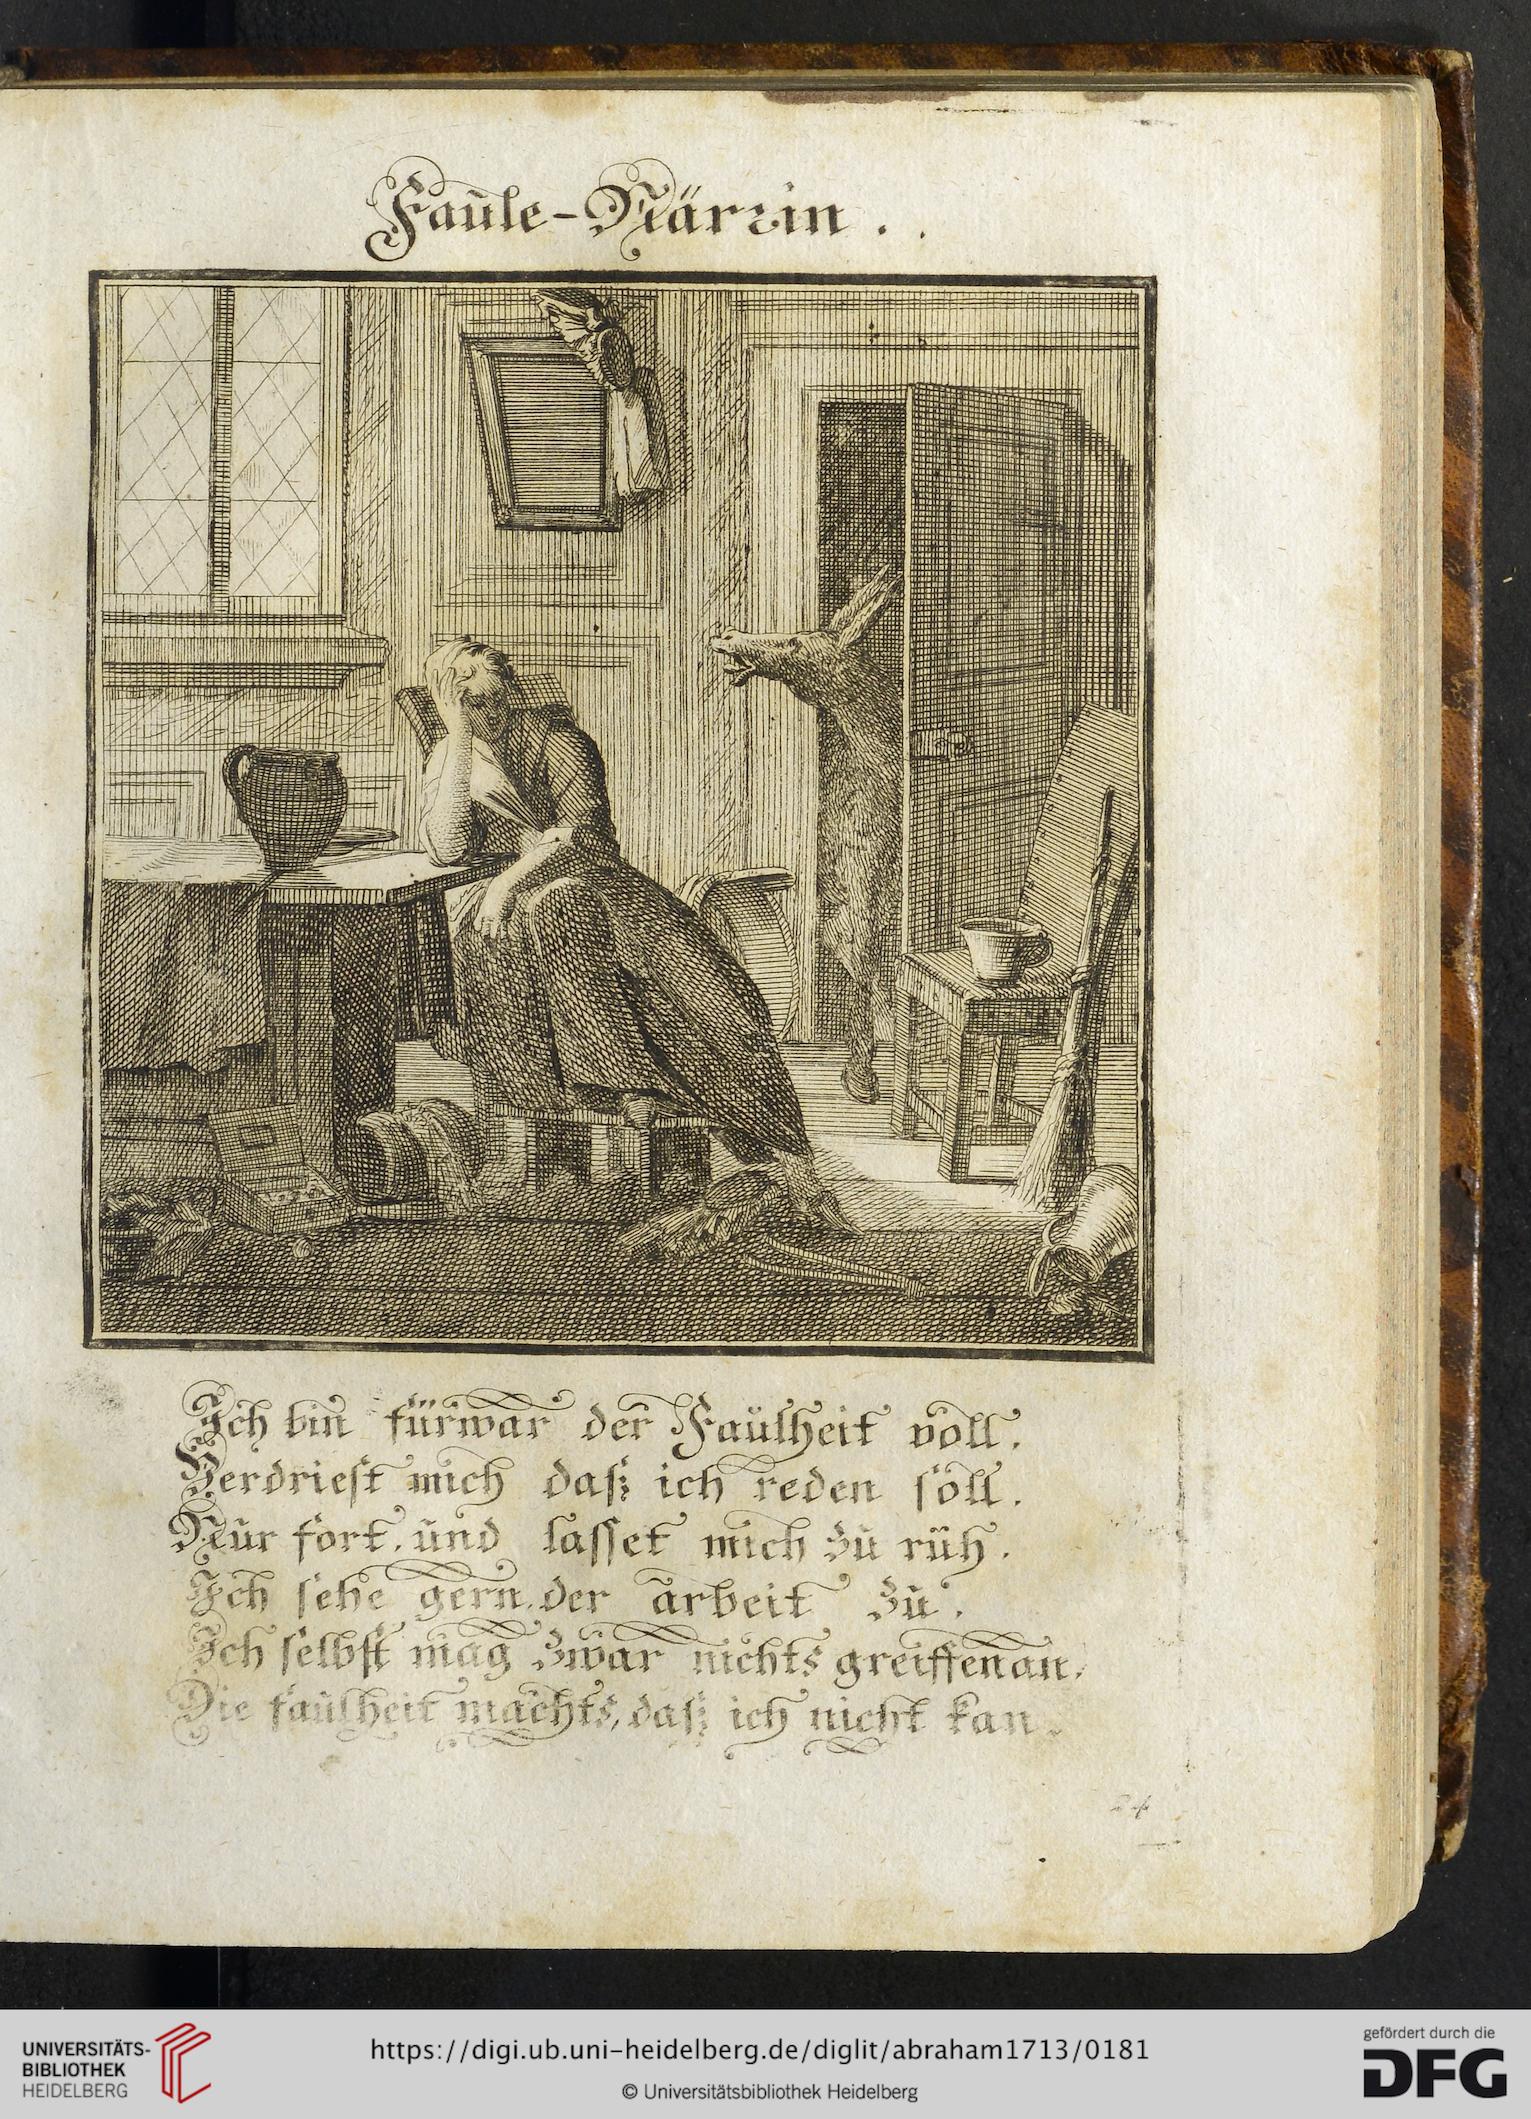 Faule-Närrin.
Ich bin fürwar der Faulheit voll.
Verdriest mich daß ich reden soll.
Nur fort, und lasset mich zu ruh.
Ich sehe gern der arbeit zu.
Ich selbst mag zwar nichts greiffen an.
Die faulheit machts, daß ich nicht kan.
24
UNIVERSITÄTS-
BIBLIOTHEK
HEIDELBERG
https://digi.ub.uni-heidelberg.de/diglit/abraham1713/0181
© Universitätsbibliothek Heidelberg
gefördert durch die
DFG